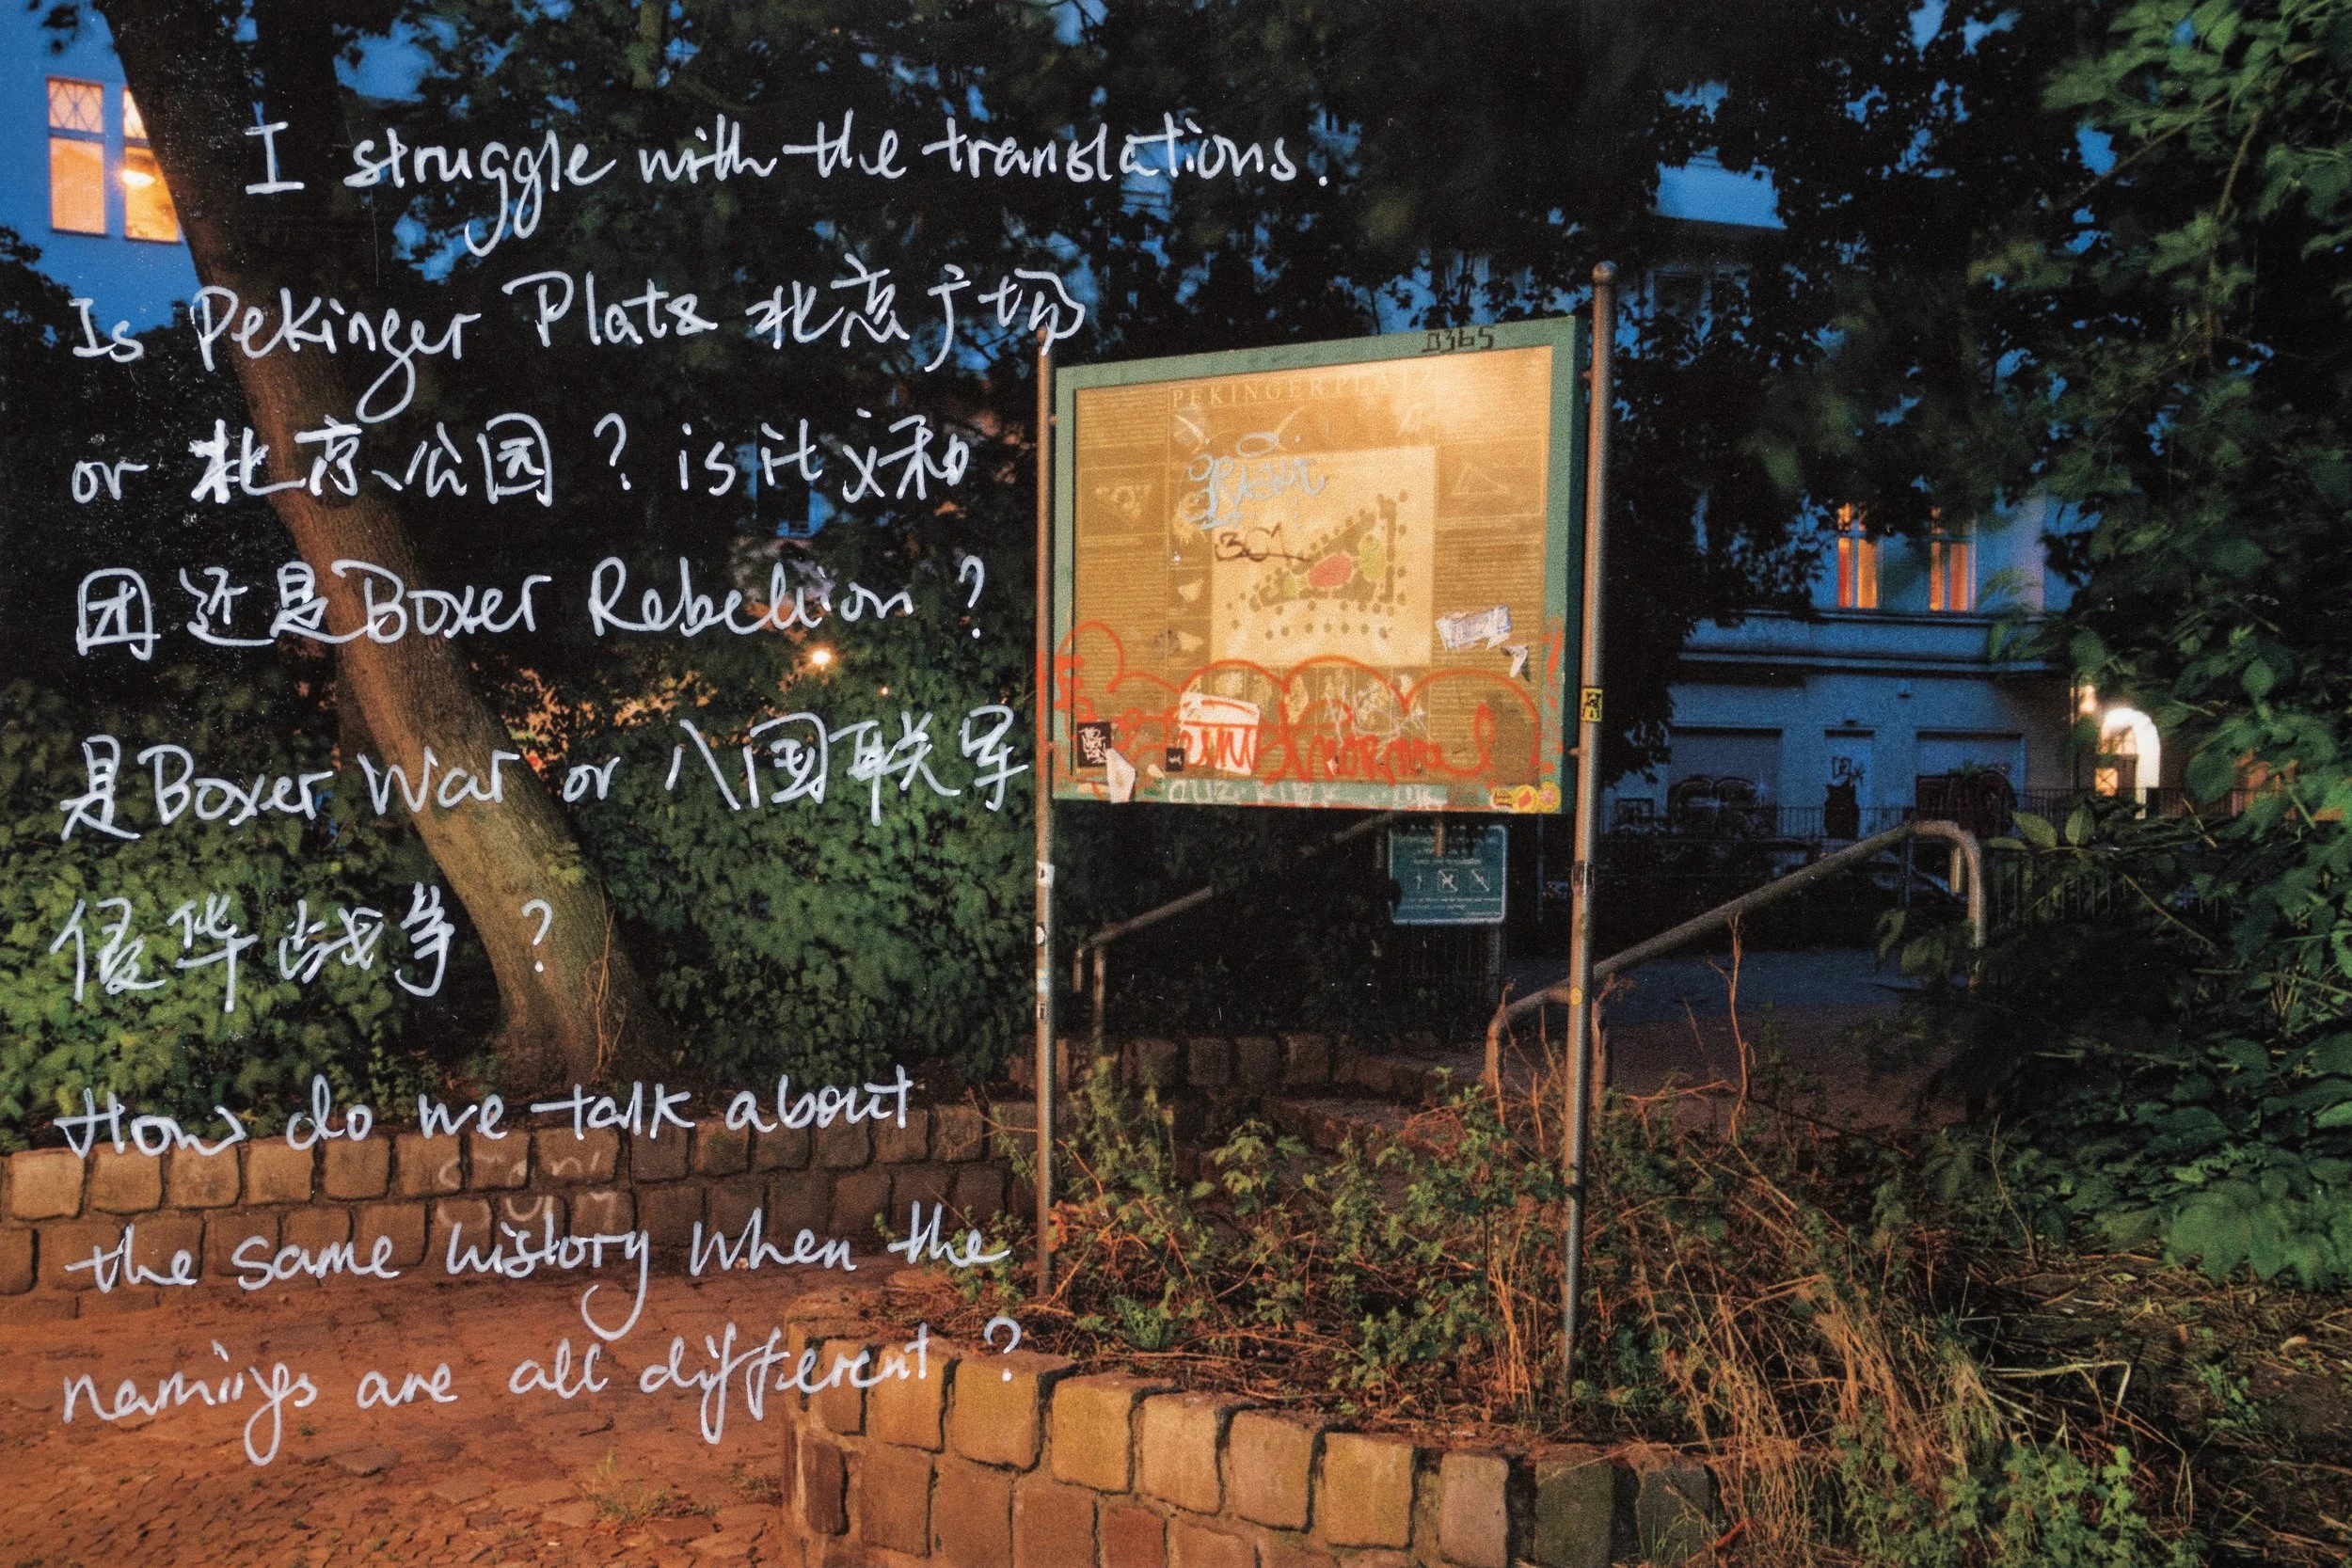 I struggle with the translations.
Is Pekinger Platz 北京广场
or 北京公园 ? is it 义和
团 还是 Boxer Rebellion ?
是 Boxer War or 八国联军
侵华战争 ?
How do we talk about
the same history when the
namings are all different ?
B365
PEKINGERPLATZ